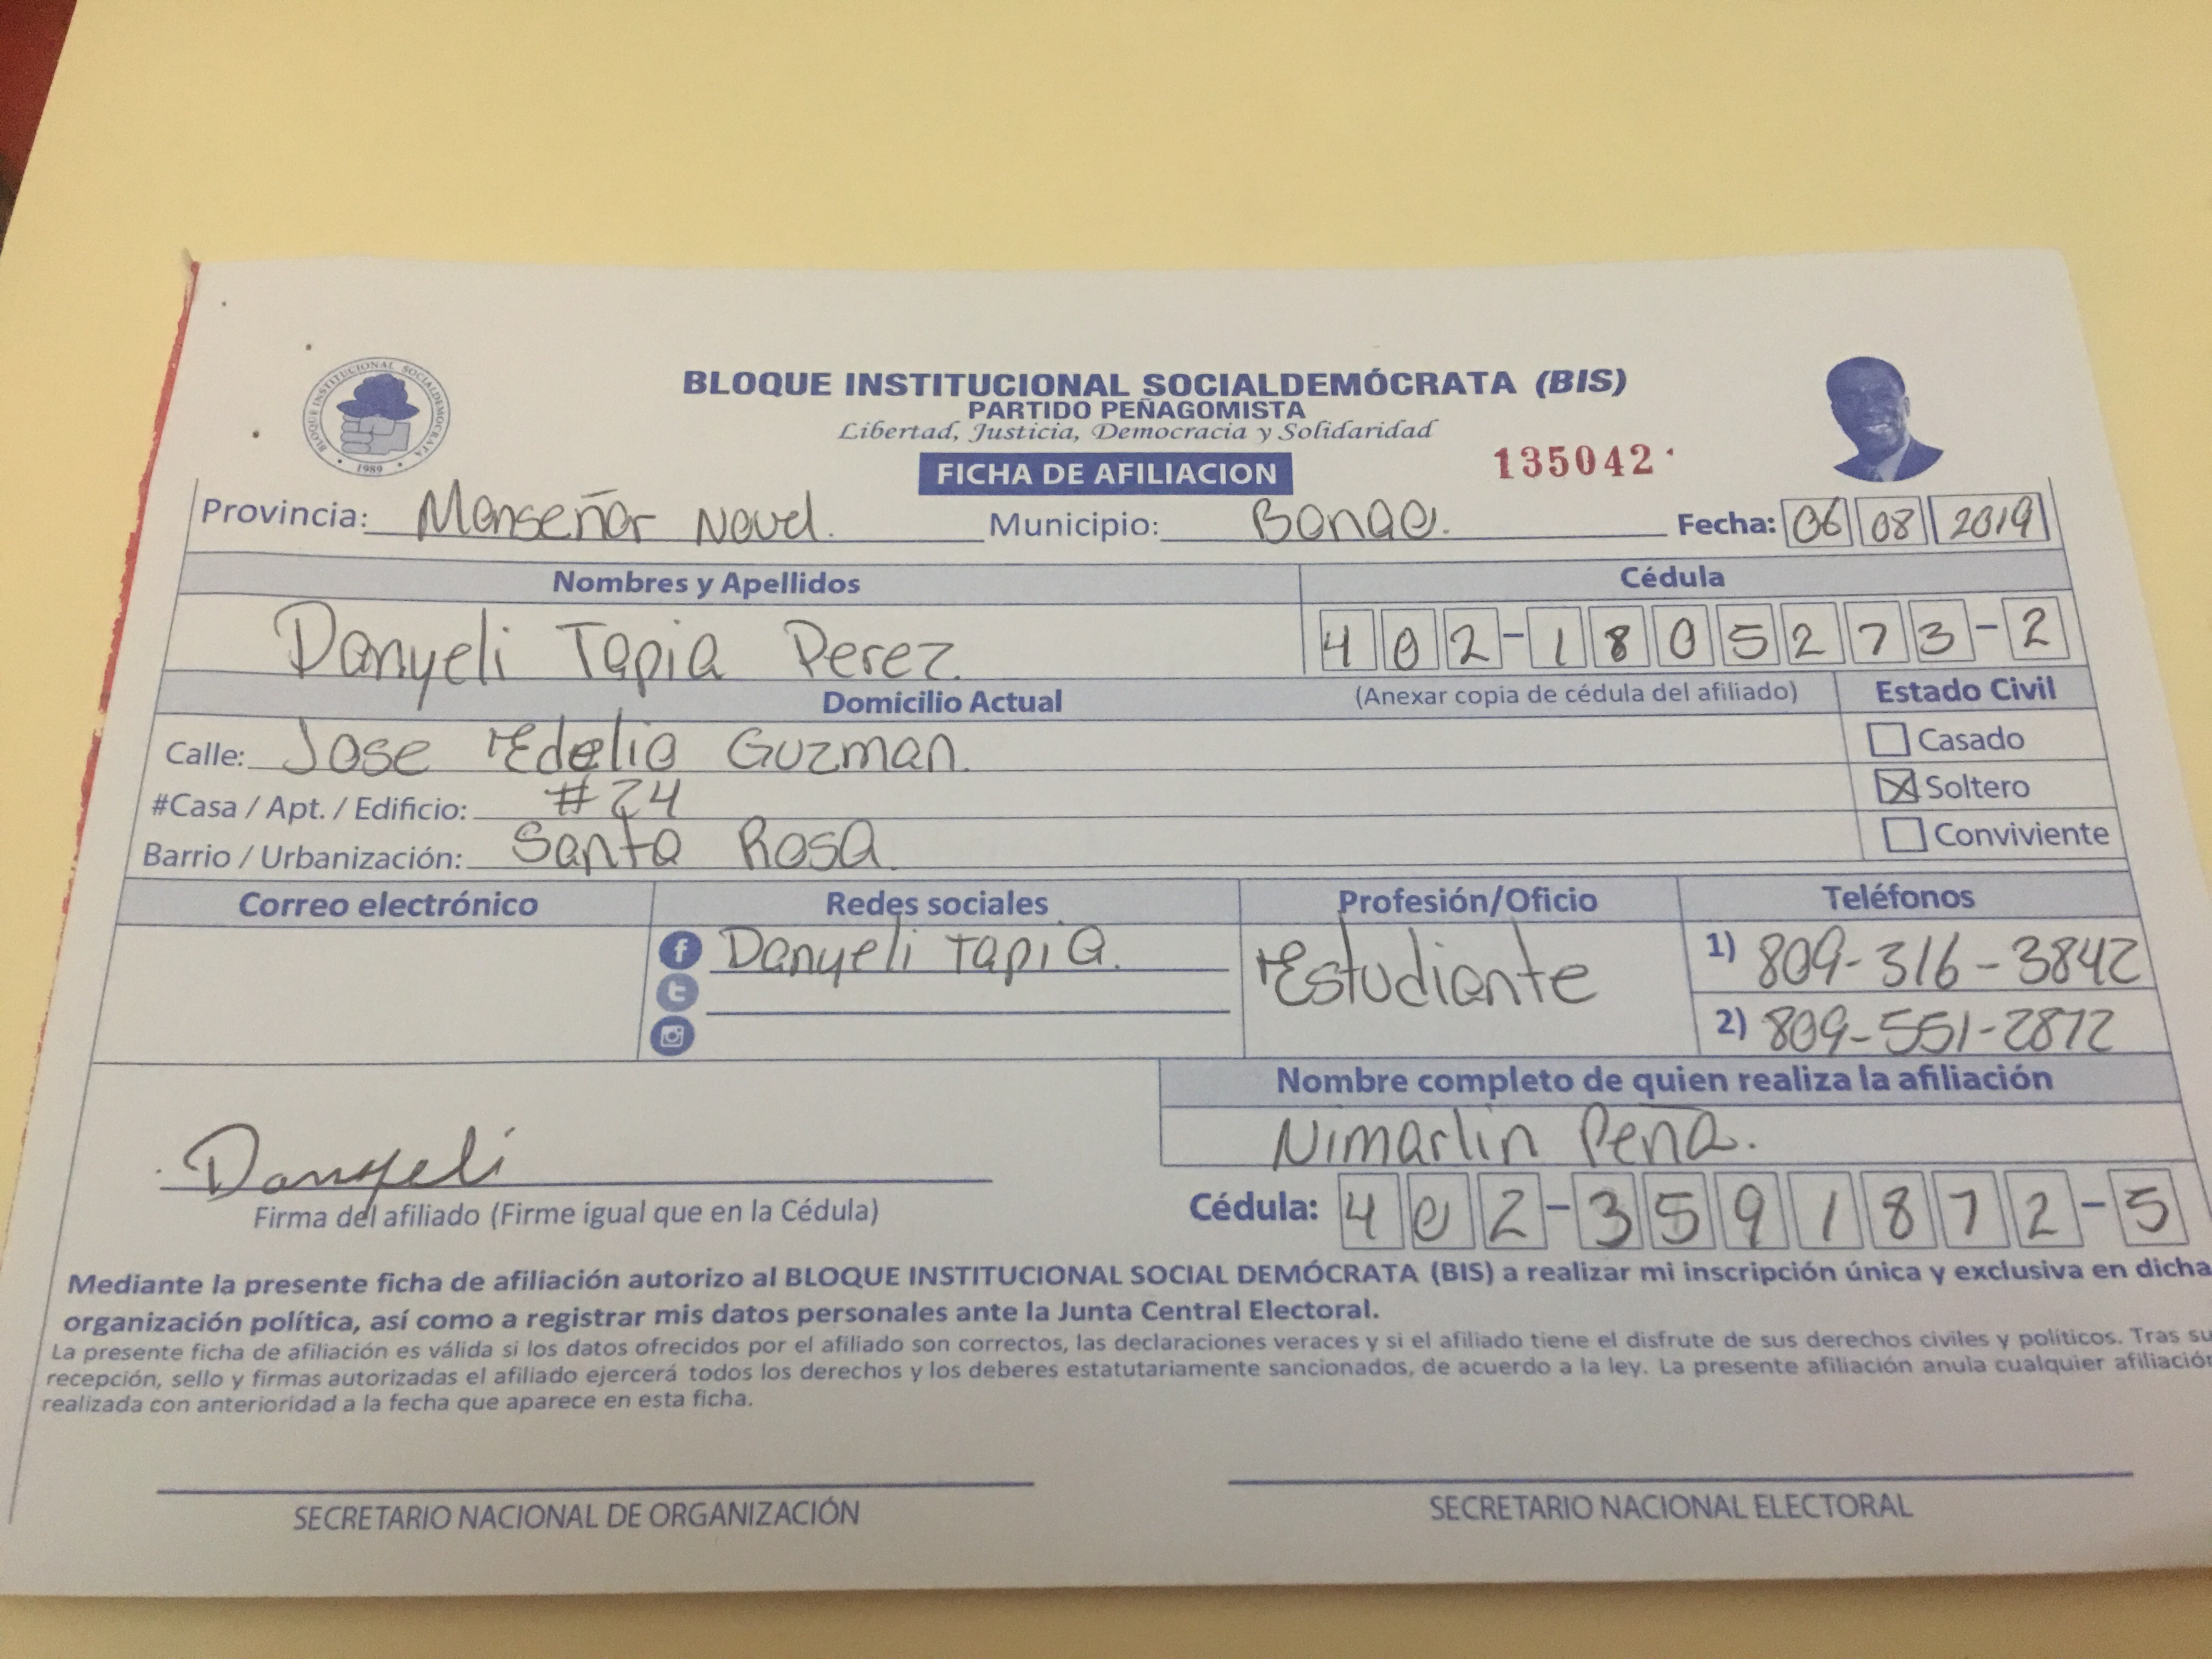 BLOQUE INSTITUCIONAL SOCIALDEMOCRATA
1989
BLOQUE INSTITUCIONAL SOCIALDEMÓCRATA (BIS)
PARTIDO PEÑAGOMISTA
Libertad, Justicia, Democracia y Solidaridad
FICHA DE AFILIACION 135042
Provincia: Monseñor Nouel. Municipio: Bonao. Fecha: 06 08 2019
Nombres y Apellidos Cédula
Danyeli Tapia Perez. 402-1805273-2
Domicilio Actual (Anexar copia de cédula del afiliado) Estado Civil
Calle: Jose Edelio Guzman. Casado
#Casa / Apt. / Edificio: #24 Soltero
Barrio / Urbanización: Santa Rosa. Conviviente
Correo electrónico Redes sociales Profesión/Oficio Teléfonos
Danyeli Tapia. Estudiante 1) 809-316-3842
2) 809-551-2872
Nombre completo de quien realiza la afiliación
Nimarlin Peña.
Danyeli
Firma del afiliado (Firme igual que en la Cédula) Cédula: 402-3591872-5
Mediante la presente ficha de afiliación autorizo al BLOQUE INSTITUCIONAL SOCIAL DEMÓCRATA (BIS) a realizar mi inscripción única y exclusiva en dicha
organización política, así como a registrar mis datos personales ante la Junta Central Electoral.
La presente ficha de afiliación es válida si los datos ofrecidos por el afiliado son correctos, las declaraciones veraces y si el afiliado tiene el disfrute de sus derechos civiles y políticos. Tras su
recepción, sello y firmas autorizadas el afiliado ejercerá todos los derechos y los deberes estatutariamente sancionados, de acuerdo a la ley. La presente afiliación anula cualquier afiliación
realizada con anterioridad a la fecha que aparece en esta ficha.
SECRETARIO NACIONAL DE ORGANIZACIÓN SECRETARIO NACIONAL ELECTORAL